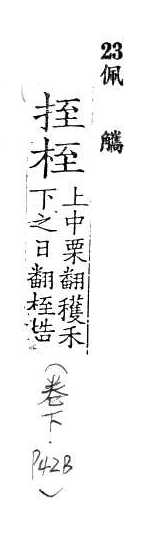 23佩觿
挃桎
上中栗翻穫禾
下之日翻桎梏
（卷下．P42B）